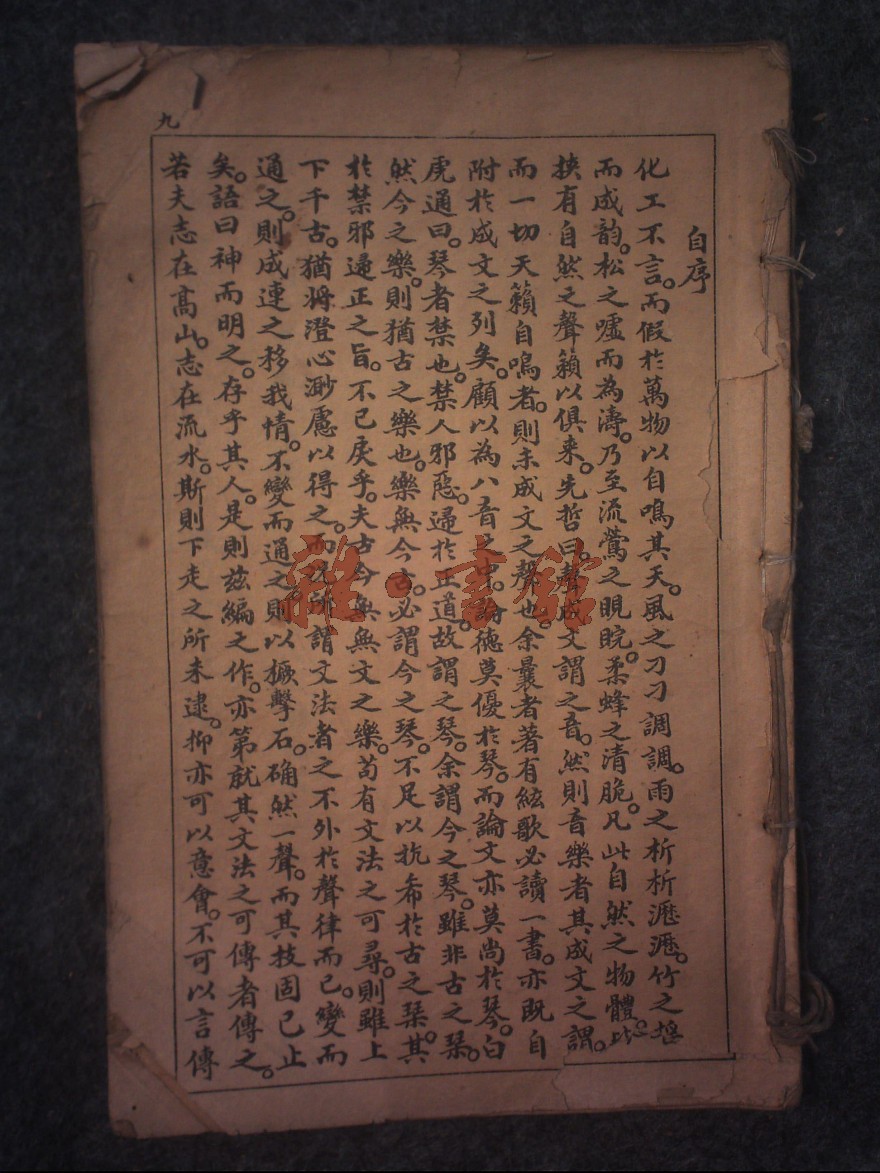 九
自序
化工不言。而假於萬物以自鳴其天。風之刁刁調調。雨之析析瀝瀝。竹之
而成韵。松之噓而為濤。乃至流鶯之睍睆。柔蜂之清脆。凡此自然之物體。
挾有自然之聲籟以俱来。先哲曰。聲成文謂之音。然則音樂者其成文之謂。
而一切天籟自鳴者。則未成文之聲也。余曩者著有絃歌必讀一書。亦既自
附於成文之列矣。顧以為八音之中。論德莫優於琴。而論文亦莫尚於琴。白
虎通曰。琴者禁也。禁人邪惡。歸於正道。故謂之琴。余謂今之琴。雖非古之琴。
然今之樂。則猶古之樂也。樂無今古。必謂今之琴。不足以抗希於古之琹。其
於禁邪歸正之旨。不已戾乎。夫古今無無文之樂。苟有文法之可尋。則雖上
下千古。猶將澄心渺慮以得之。而况所謂文法者之不外於聲律而已。變而
通之。則成連之移我情。不變而通之。則以橛擊石。确然一聲。而其技固已止
矣。語曰神而明之。存乎其人。是則茲編之作。亦第就其文法之可傳者傳之。
若夫志在髙山。志在流水。斯則下走之所未逮。抑亦可以意會。不可以言傳
雜·書館